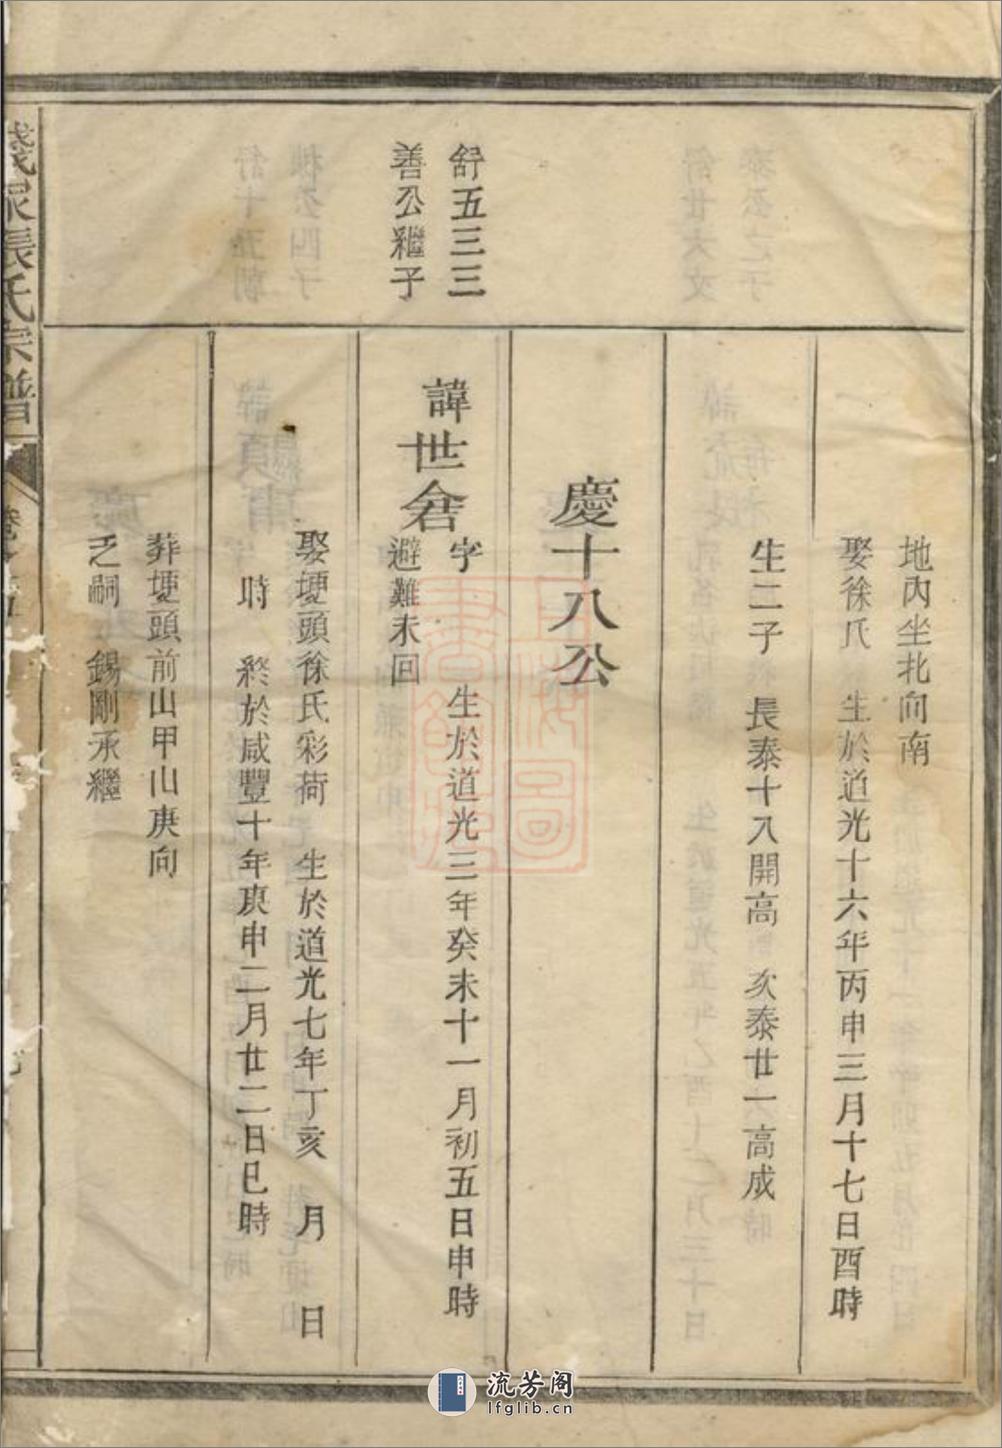 地內坐北向南
娶徐氏 生於道光十六年丙申三月十七日酉時
生二子 長泰十八開高 次泰廿一高成
慶十八公
舒五三三
善公繼子
諱世畣
字 生於道光三年癸未十一月初五日申時
避難未回
娶堘頭徐氏彩荷 生於道光七年丁亥 月 日
時 終於咸豐十年庚申二月廿二日巳時
葬堘頭前山甲山庚向
乏嗣 錫剛承繼
張氏宗譜
流芳阁
lfglib.cn